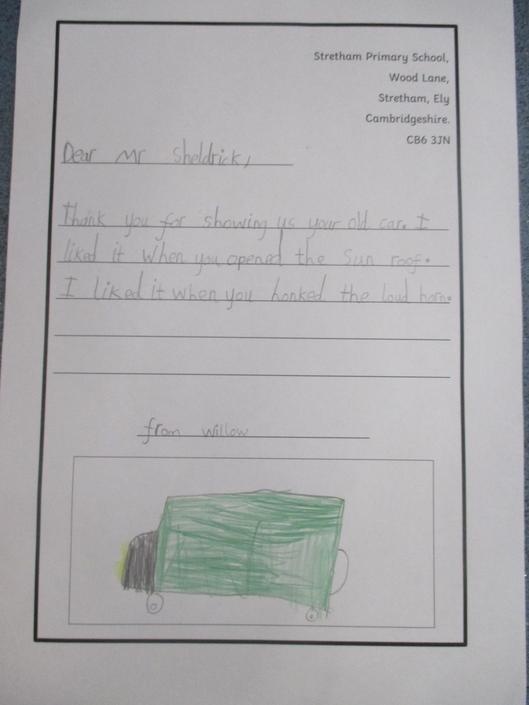 Stretham Primary School,
Wood Lane,
Stretham, Ely
Cambridgeshire.
CB6 3JN
Dear Mr Sheldrick,
Thank you for showing us your old car. I
liked it when you opened the Sun roof.
I liked it when you honked the loud horn.
from Willow